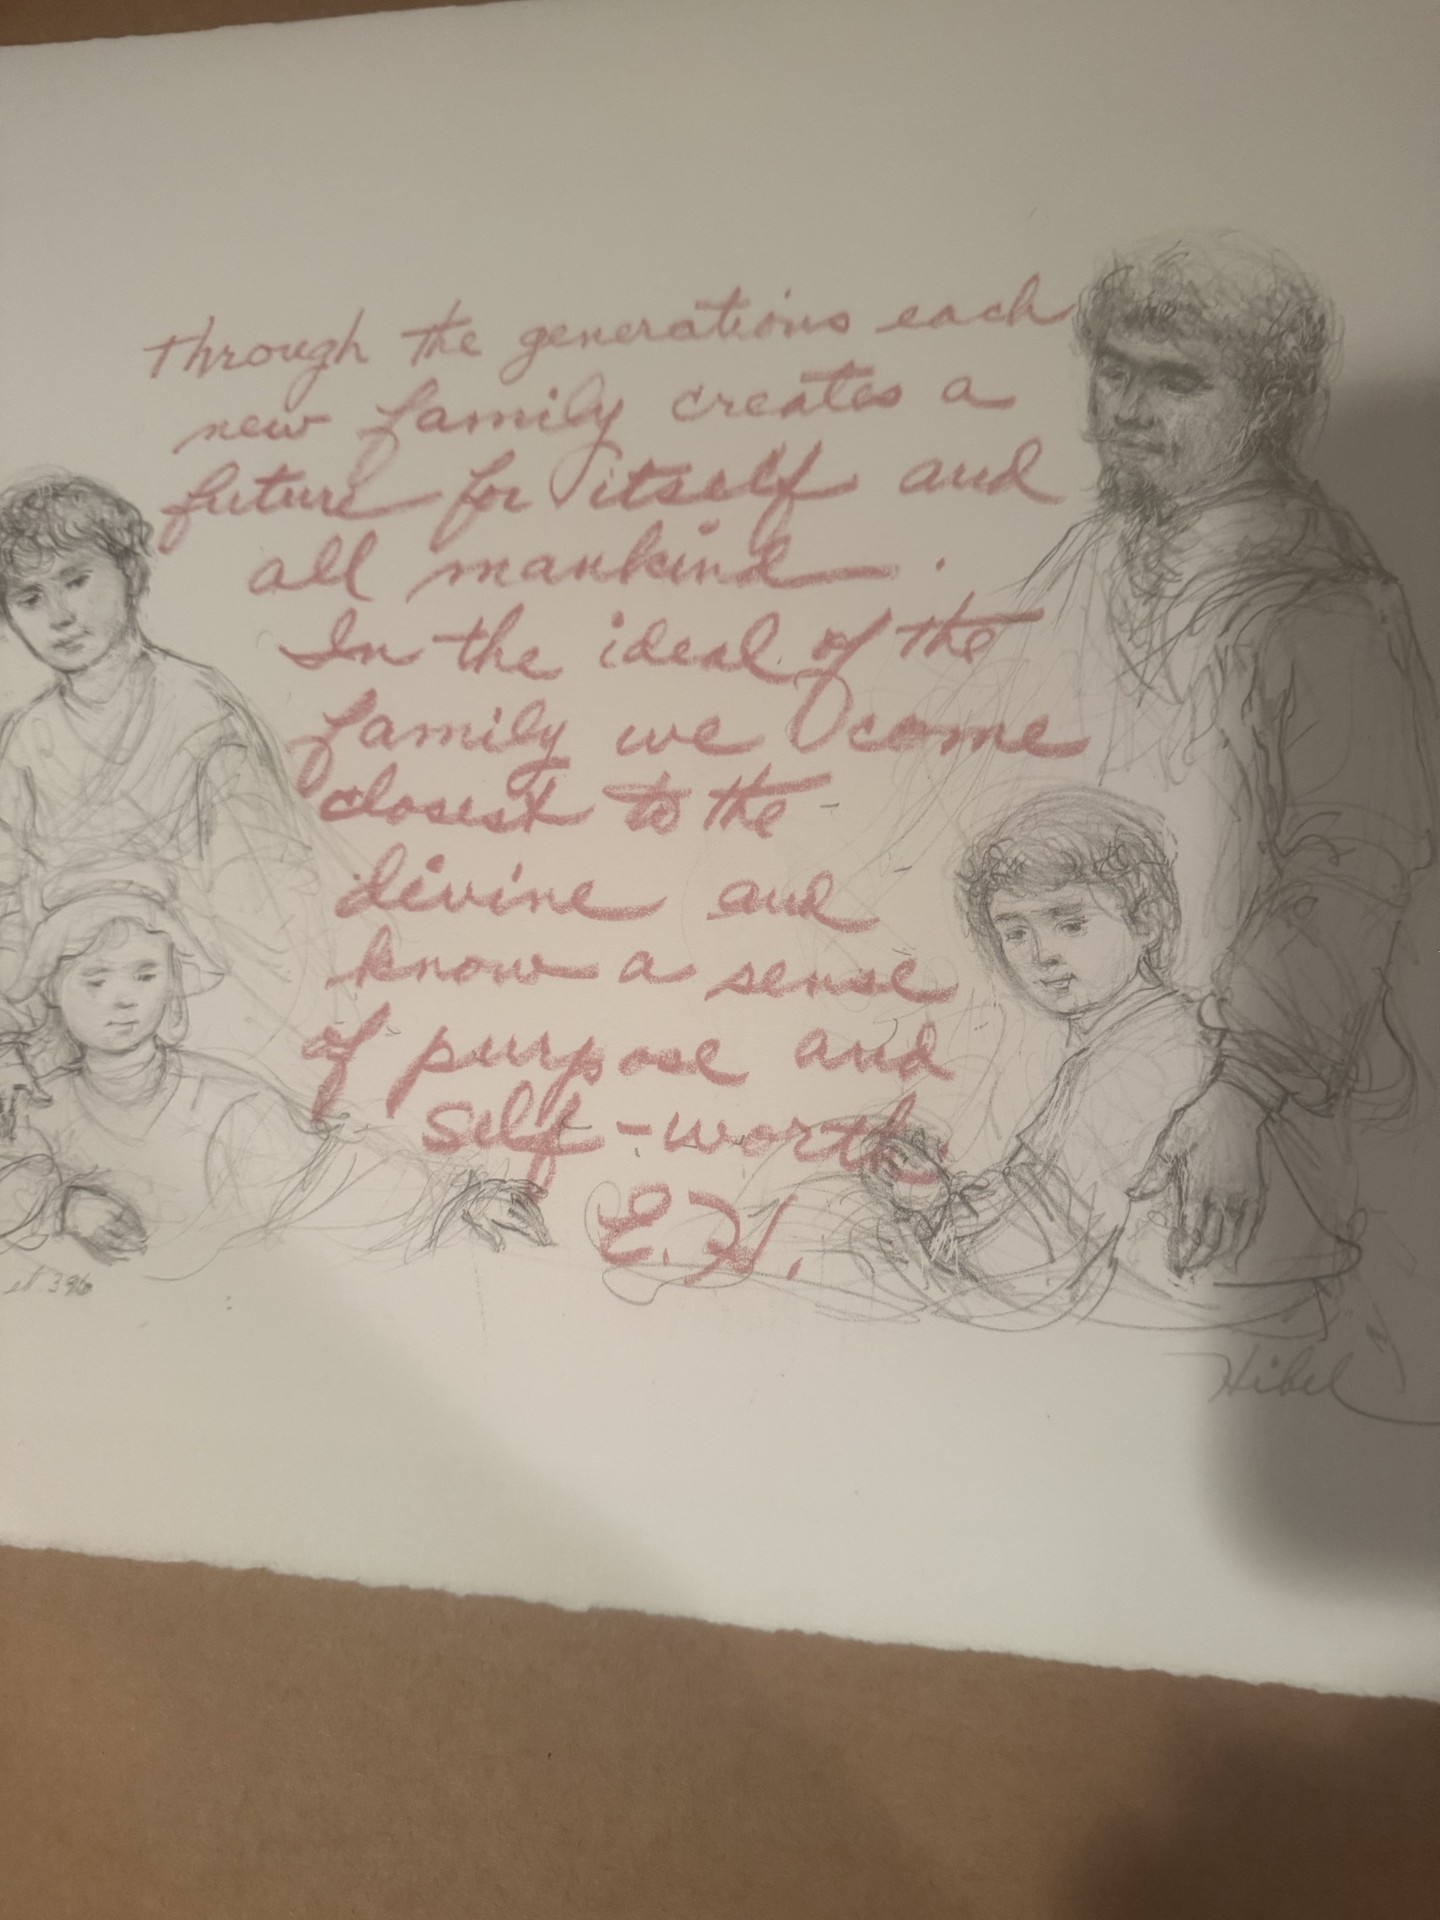 Through the generations each
new family creates a
future for itself and
all mankind.
In the ideal of the
family we come
closest to the
divine and
know a sense
of purpose and
self-worth.
E.H.
396
Hibel